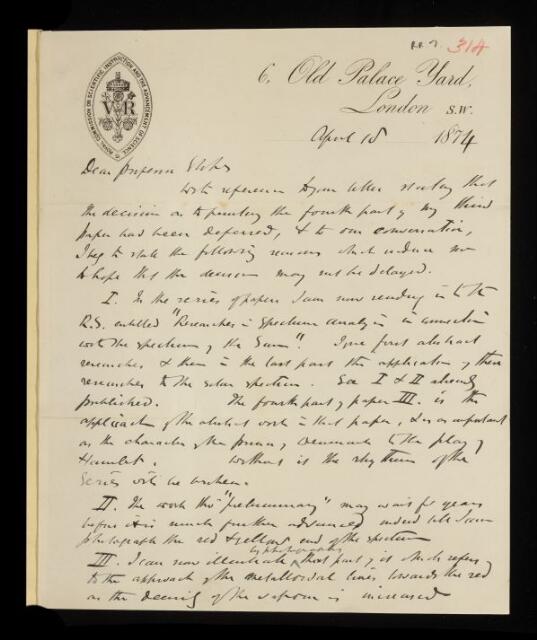 R.R. 7. 314
ROYAL COMMISSION ON SCIENTIFIC INSTRUCTION AND THE ADVANCEMENT OF SCIENCE
V R
6, Old Palace Yard,
London S.W.
April 18 1874
Dear Professor Stokes
With reference to your letter stating that
the decision as to printing the fourth part of my third
paper had been deferred, & to our conversation,
I beg to state the following reasons which induce me
to hope that the decision may not be delayed.
I. In the series of papers I am now sending in to the
R.S. entitled "Researches in Spectrum analysis in connection
with the spectrum of the Sun". I give first abstract
researches & then in the last part the application of these
researches to the solar spectrum. See I & II already
published. The fourth part of paper III. is the
application of the abstract work in that paper, & is as important
as the character of the prince of Denmark to the play of
Hamlet. Without it the rhythm of the
Series will be broken.
II. The work tho' "preliminary" may wait for years
before it is much further advanced indeed till I can
photograph the red & yellow end of the spectrum
by photographs
III. I can now illustrate that part of it which refers
to the approach of the metalloidal lines towards the red
as the density of the vapour is increased